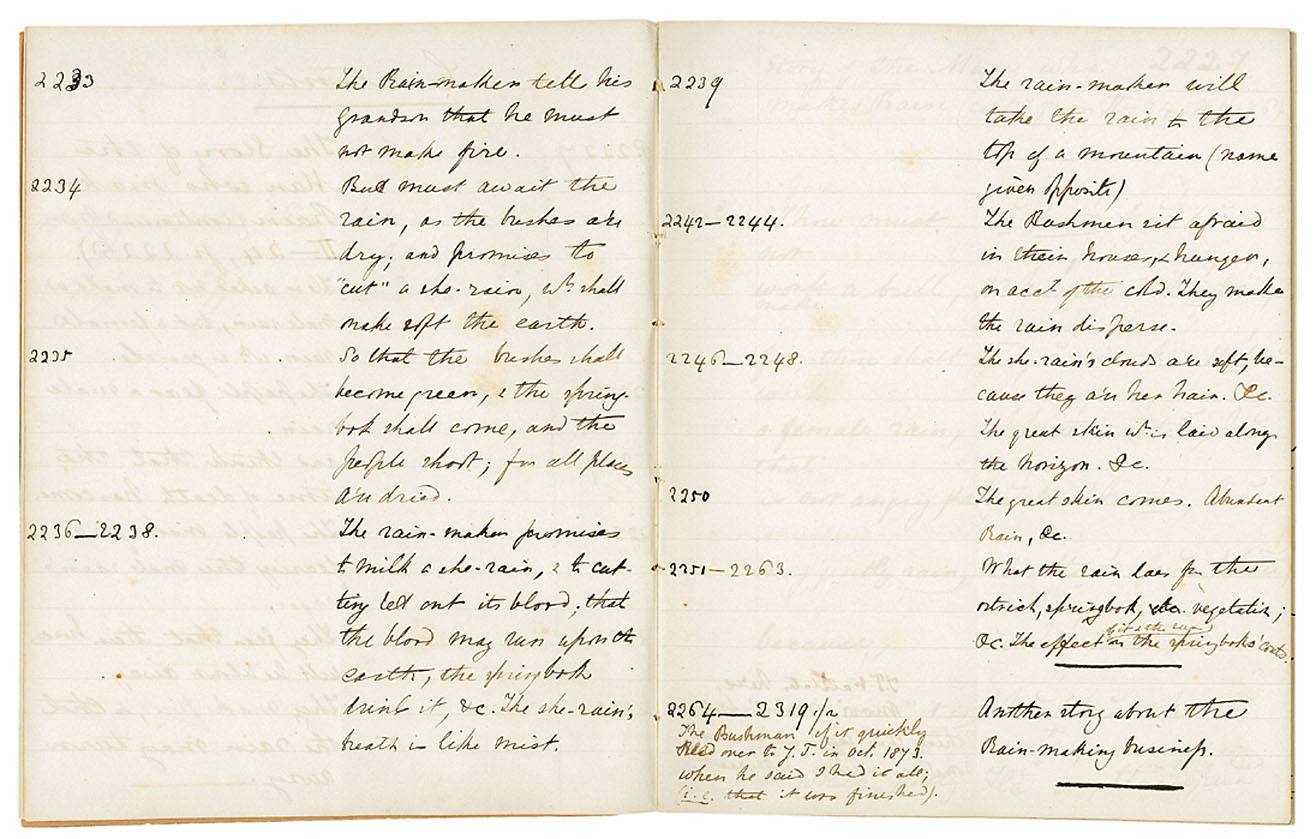 2233 The Rain-maker tells his
grandson that he must
not make fire.
2234 But must await the
rain, as the bushes are
dry; and promises to
"cut" a she-rain, wh. shall
make soft the earth.
2235 So that the bushes shall
become green, & the spring-
bok shall come, and the
people shoot; for all places
are dried.
2236—2238. The rain-maker promises
to milk a she-rain, & to cut-
ting let out its blood; that
the blood may run upon the
earth, the springbok
drink it, &c. The she-rain's
breath is like mist.
2227
2239 The rain-maker will
take the rain to the
top of a mountain (name
given opposite)
2242—2244. The Bushmen sit afraid
in their houses, & hunger,
on acct. of the cold. They make
the rain disperse.
2246—2248. The she-rain's clouds are soft, be-
cause they are her hair. &c.
The great skin wh. is laid along
the horizon. &c.
2250 The great skin comes. Abundant
Rain, &c.
2251—2263. What the rain does for the
ostrich, springbok, vegetation;
&c. The effect on the springboks' coats.
2264—2319½ Another story about the
Rain-making business.
The Bushman if it quickly
over to J.T. in Oct. 1873.
when he said I had it all;
(i.e. that it was finished).